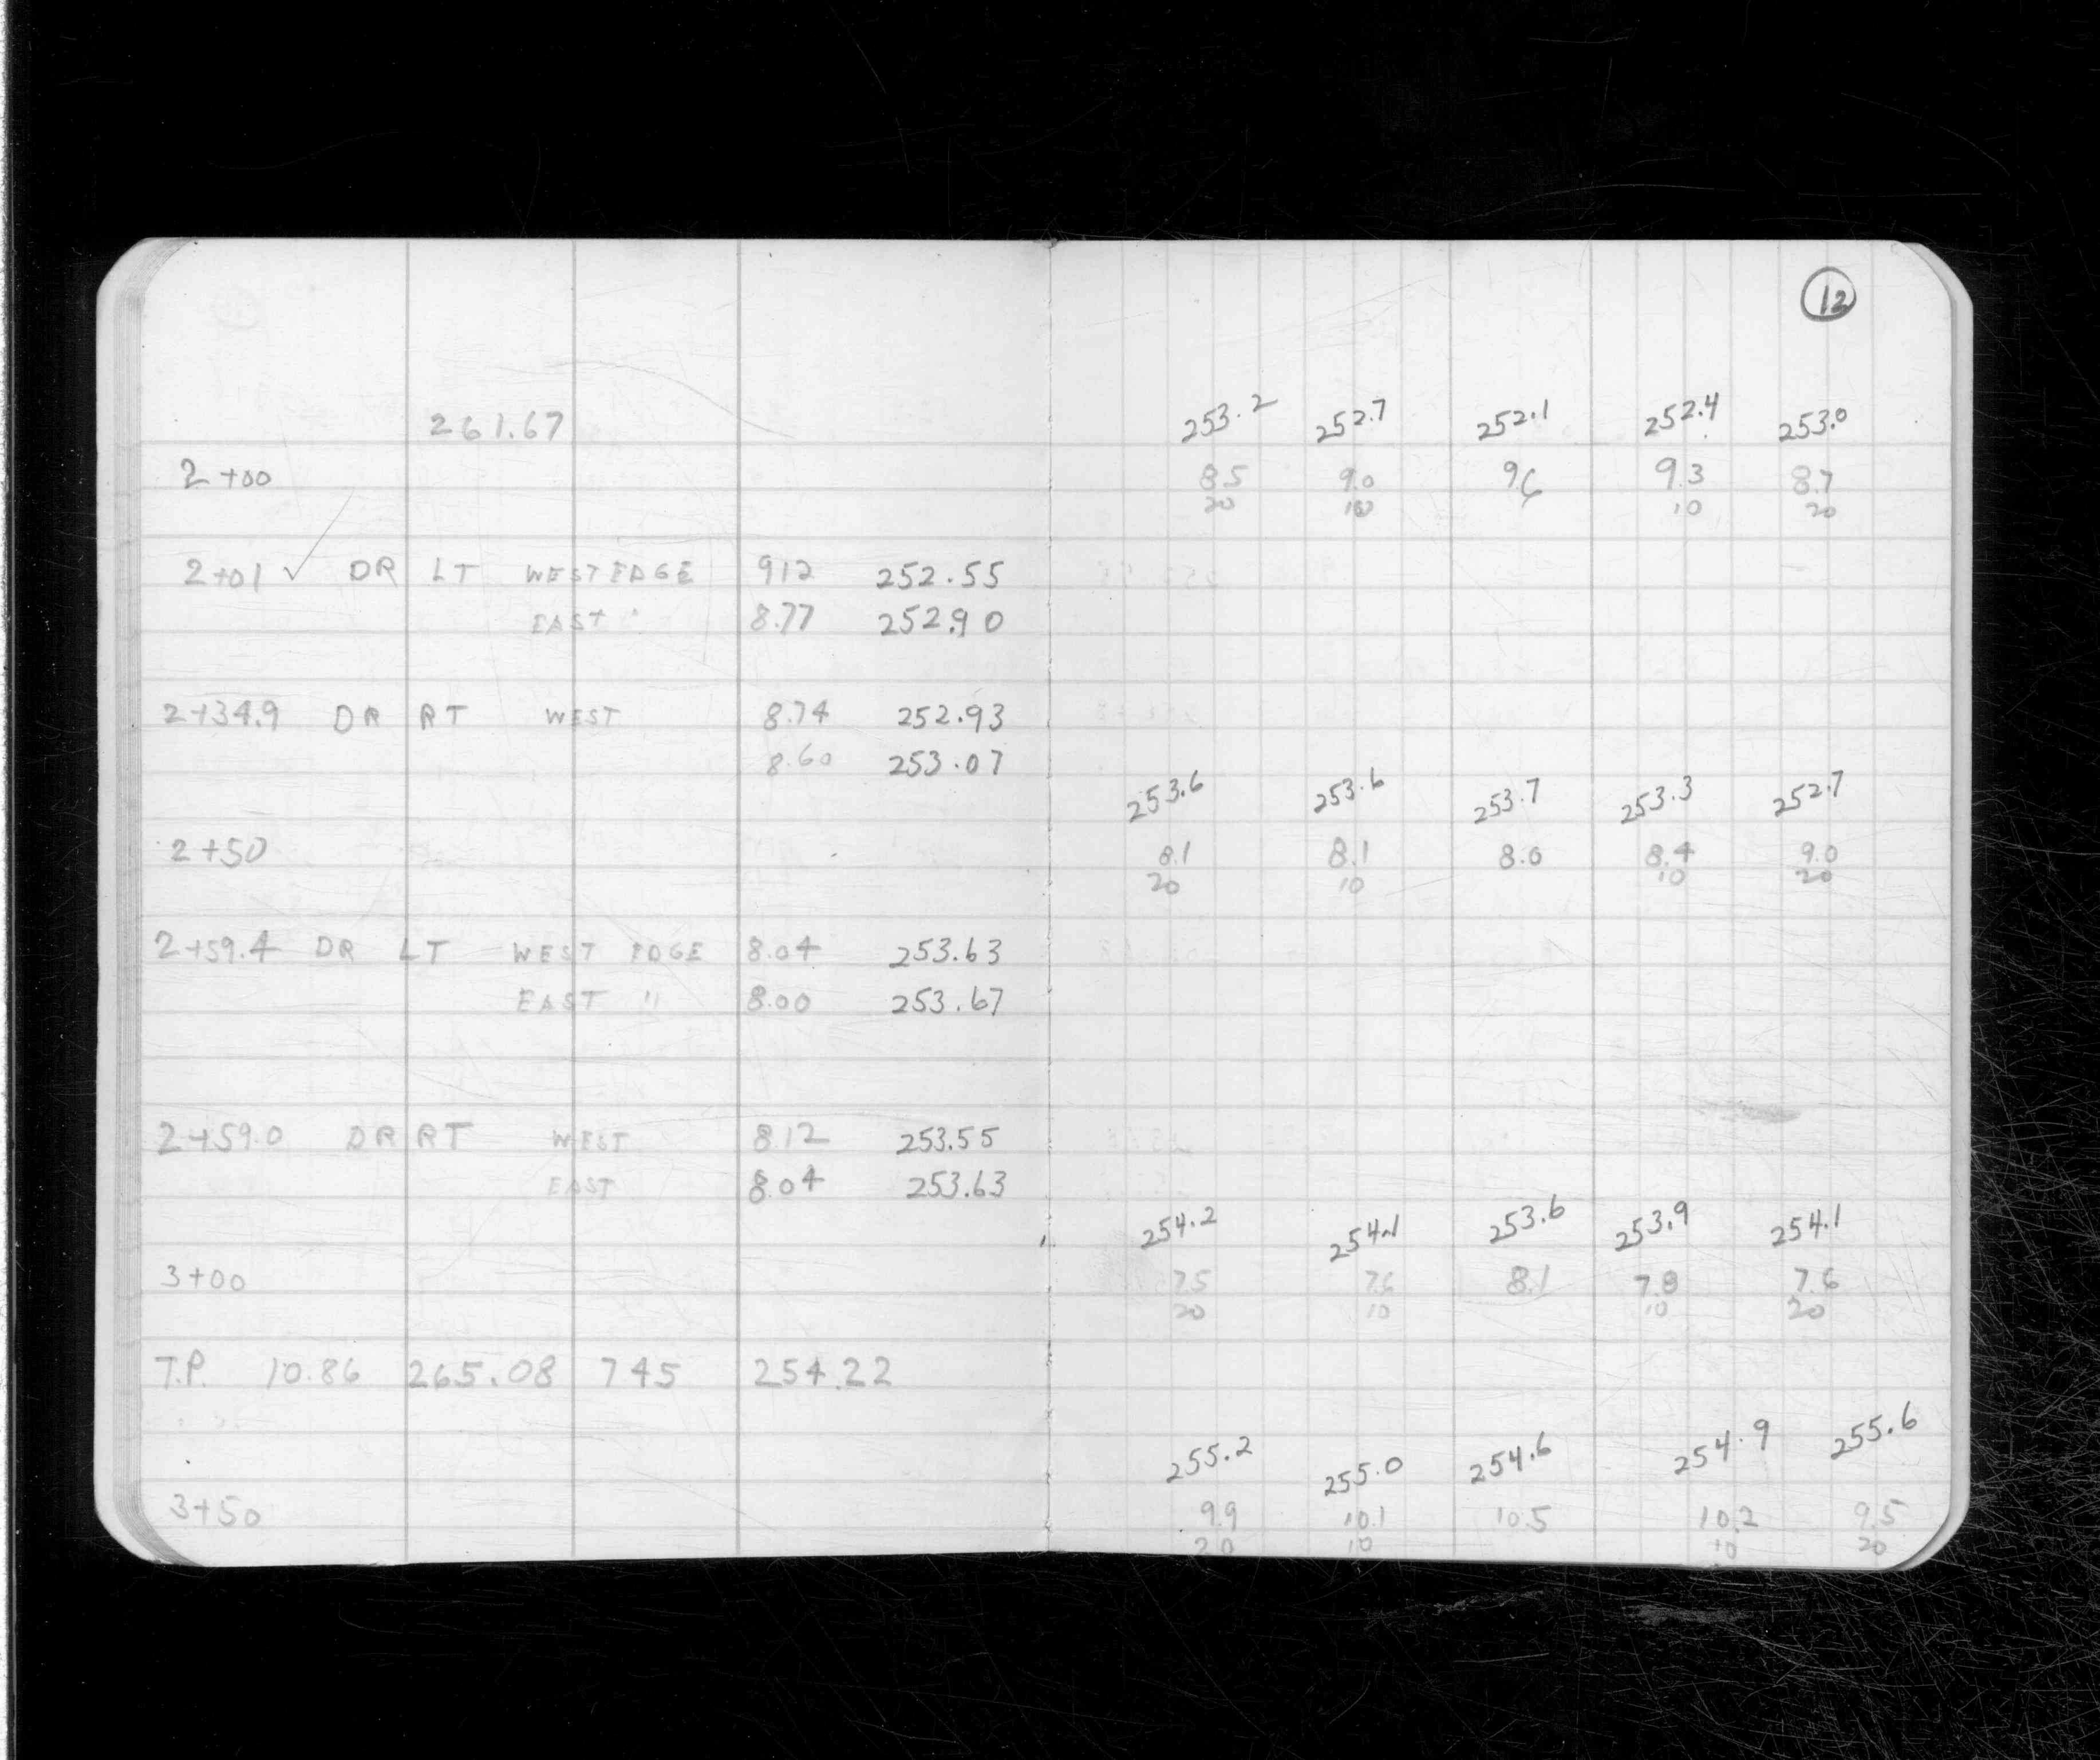 12
261.67
253.2 252.7 252.1 252.4 253.0
2+00 8.5 9.0 9.6 9.3 8.7
20 10 10 20
2+01 ✓ DR LT WEST EDGE 912 252.55
EAST " 8.77 252.90
2+34.9 DR RT WEST 8.74 252.93
8.60 253.07
253.6 253.6 253.7 253.3 252.7
2+50 8.1 8.1 8.0 8.4 9.0
20 10 10 20
2+59.4 DR LT WEST EDGE 8.04 253.63
EAST " 8.00 253.67
2+59.0 DR RT WEST 8.12 253.55
EAST 8.04 253.63
254.2 254.1 253.6 253.9 254.1
3+00 7.5 7.6 8.1 7.8 7.6
20 10 10 20
T.P. 10.86 265.08 745 254.22
255.2 255.0 254.6 254.9 255.6
3+50 9.9 10.1 10.5 10.2 9.5
20 10 10 20